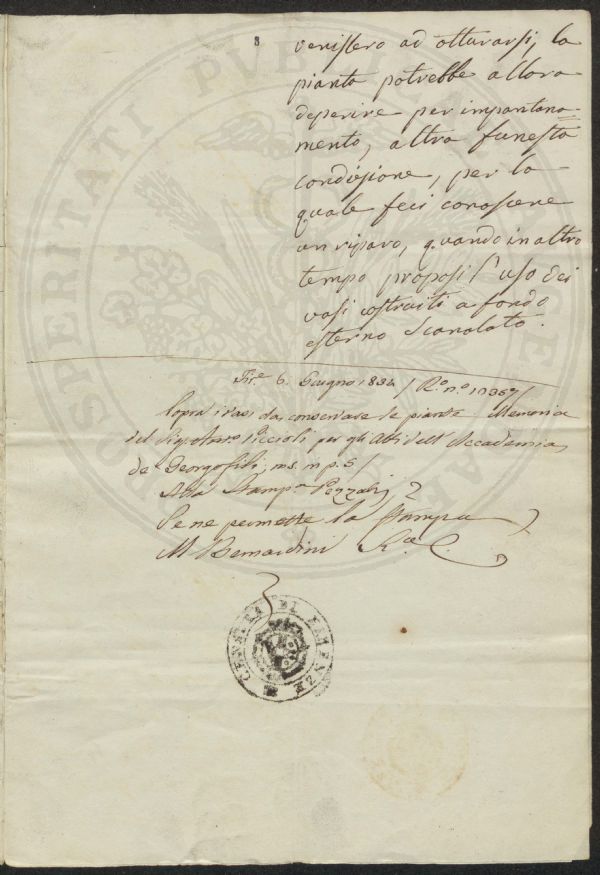 venissero ad otturarsi, la
pianta potrebbe allora
deperire per impantana=
mento, altra funesta
condizione, per la
quale feci conoscere
un riparo, quando in altro
tempo proposi l'uso dei
vasi costruiti a fondo
esterno Scanalato.
Fir.e 6. Giugno 1834 / R.o n.o
Sopra i vasi da conservare le piante Memoria
del Sig. Ant.o Piccioli per gli Atti dell'Accademia
de Georgofili, ms. n p. 5/
Alla Stamp.a Pezzati
Se ne permette la Stampa
M Bernardini
CENSURA DI FIRENZE
PROSPERITATI PUBLICAE